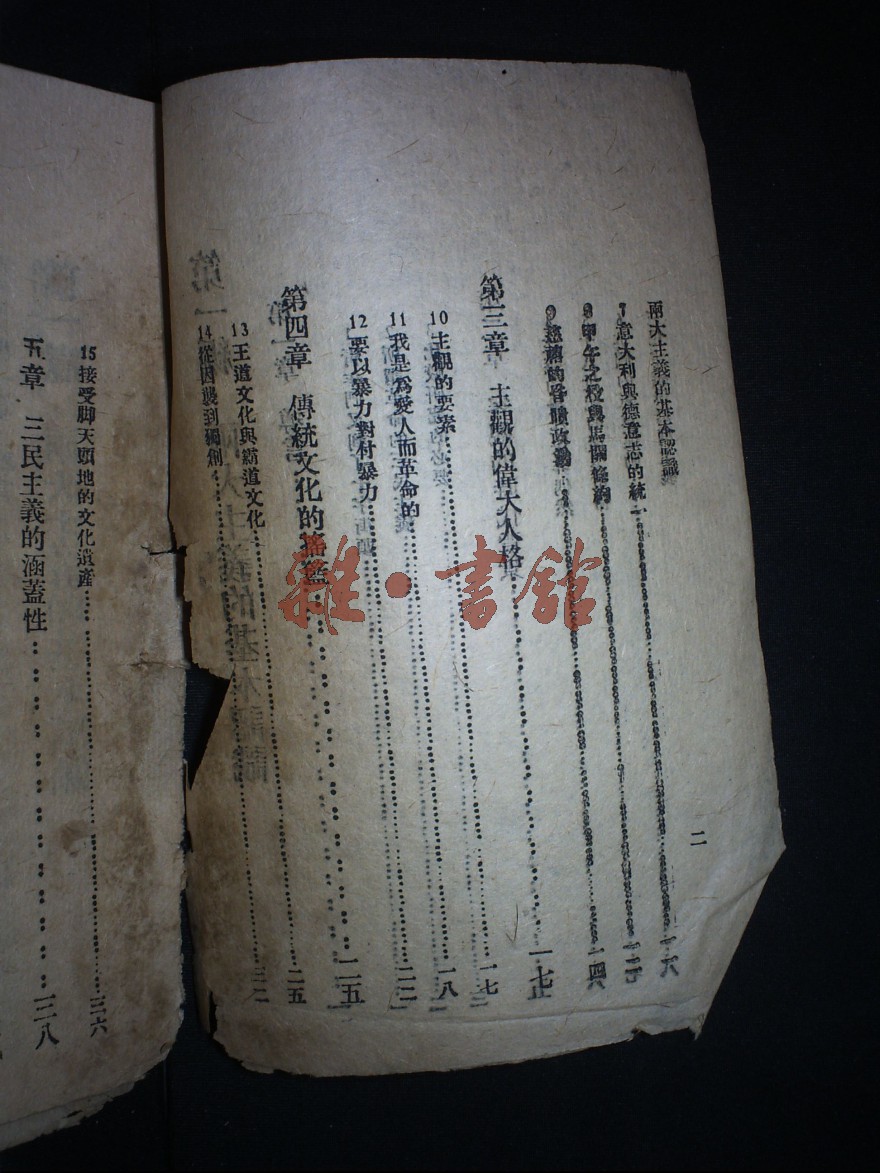 兩大主義的基本認識
二
7 意大利與德意志的統一
8 甲午之役與馬關條約
9 慈禧的昏聵政動
第三章 主觀的偉大人格
10 主觀的要素
11 我是爲愛人而革命的
12 要以暴力對付暴力
第四章 傳統文化的搖籃 二五
13 王道文化與霸道文化 二五
14 從因襲到獨創 三二
15 接受脚天頭地的文化遺產 三六
五章 三民主義的涵蓋性 三八
雜·書館